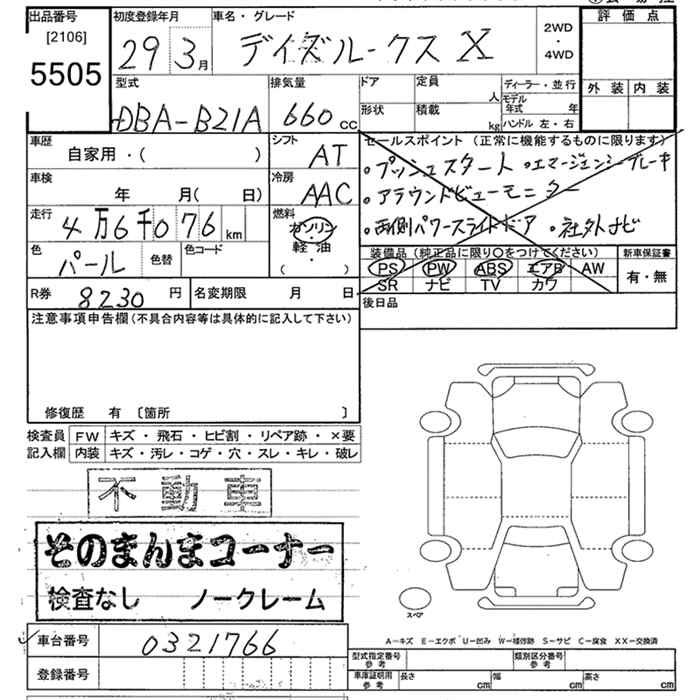 出品番号 初度登録年月 車名・グレード 評価点
[2106]
5505
29 3月 デイズルークス X 2WD・4WD
外装 内装
型式 排気量 ドア 定員 人 ディーラー・並行
DBA-B21A 660cc
形状 積載 kg モデル年式 年
ハンドル 左・右
車歴 シフト セールスポイント (正常に機能するものに限ります)
自家用・( ) AT
・プッシュスタート ・エマージェンシーブレーキ
車検 冷房 ・アラウンドビューモニター
年 月( 日) AAC
走行 燃料 ・両側パワースライドドア ・社外ナビ
4万6千076km ガソリン・軽油・( )
色 色替 色コード 装備品 (純正品に限り〇をつけてください) 新車保証書
パール PS PW ABS エアB AW 有・無
SR ナビ TV カワ
R券 8230円 名変期限 月 日 後日品
注意事項申告欄 (不具合内容等は具体的に記入して下さい)
修復歴 有 〔箇所 〕
検査員 FW キズ・飛石・ヒビ割・リペア跡・×要
記入欄 内装 キズ・汚レ・コゲ・穴・スレ・キレ・破レ
不動車
そのまんまコーナー
検査なし ノークレーム
スペア
A-キズ E-エクボ U-凹み W-補修跡 S-サビ C-腐食 XX-交換済
車台番号 0321766
型式指定番号 参考 類別区分番号 参考
登録番号
車庫証明用 参考 長さ cm 幅 cm 高さ cm